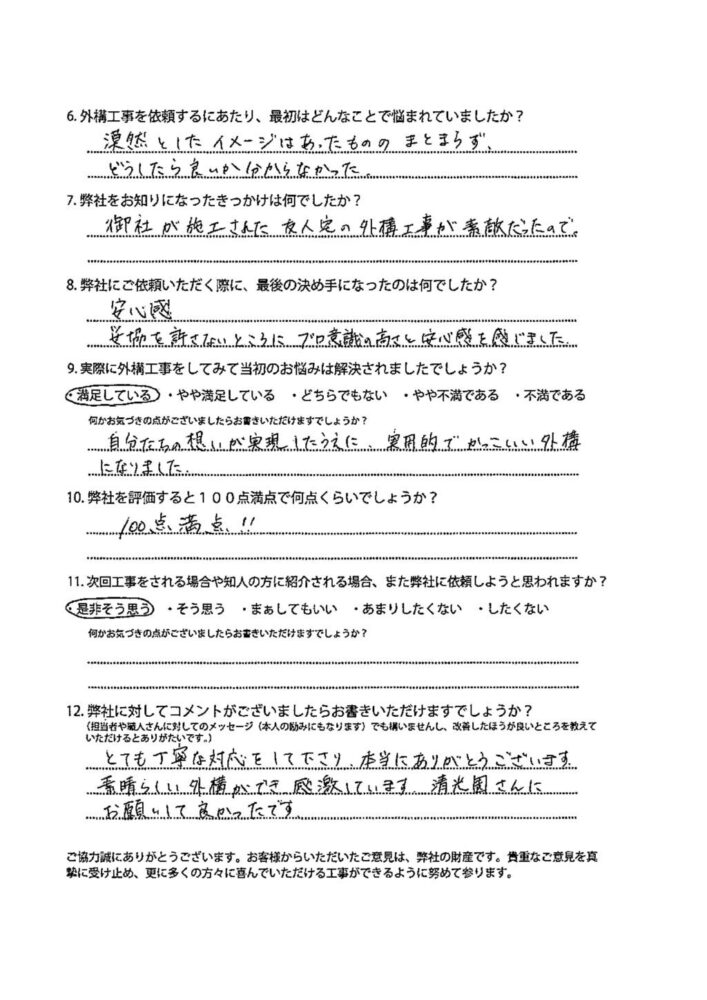 6. 外構工事を依頼するにあたり、最初はどんなことで悩まれていましたか？
漠然としたイメージはあったもののまとまらず、
どうしたら良いか分からなかった。
7. 弊社をお知りになったきっかけは何でしたか？
御社が施工された友人宅の外構工事が素敵だったので。
8. 弊社にご依頼いただく際に、最後の決め手になったのは何でしたか？
安心感
妥協を許さないところにプロ意識の高さと安心感を感じました。
9. 実際に外構工事をしてみて当初のお悩みは解決されましたでしょうか？
・満足している ・やや満足している ・どちらでもない ・やや不満である ・不満である
何かお気づきの点がございましたらお書きいただけますでしょうか？
自分たちの想いが実現したうえに、実用的でかっこいい外構
になりました。
10. 弊社を評価すると１００点満点で何点くらいでしょうか？
100点満点!!
11. 次回工事をされる場合や知人の方に紹介される場合、また弊社に依頼しようと思われますか？
・是非そう思う ・そう思う ・まぁしてもいい ・あまりしたくない ・したくない
何かお気づきの点がございましたらお書きいただけますでしょうか？
12. 弊社に対してコメントがございましたらお書きいただけますでしょうか？
（担当者や職人さんに対してのメッセージ（本人の励みにもなります）でも構いませんし、改善したほうが良いところを教えて
いただけるとありがたいです。）
とても丁寧な対応をして下さり、本当にありがとうございます。
素晴らしい外構ができ感激しています。清光園さんに
お願いして良かったです。
ご協力誠にありがとうございます。お客様からいただいたご意見は、弊社の財産です。貴重なご意見を真
摯に受け止め、更に多くの方々に喜んでいただける工事ができるように努めて参ります。